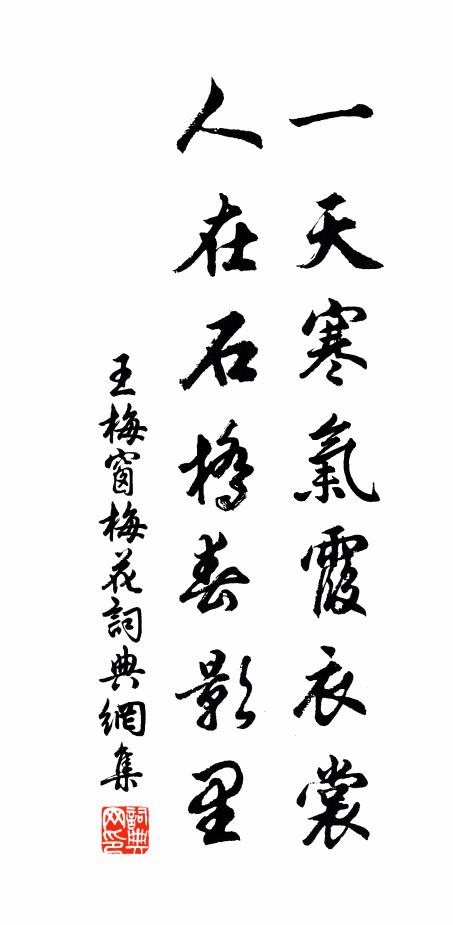 一天寒氣霞衣裳
人在石橋春影里
王梅窗梅花詞典網集
詞典网印